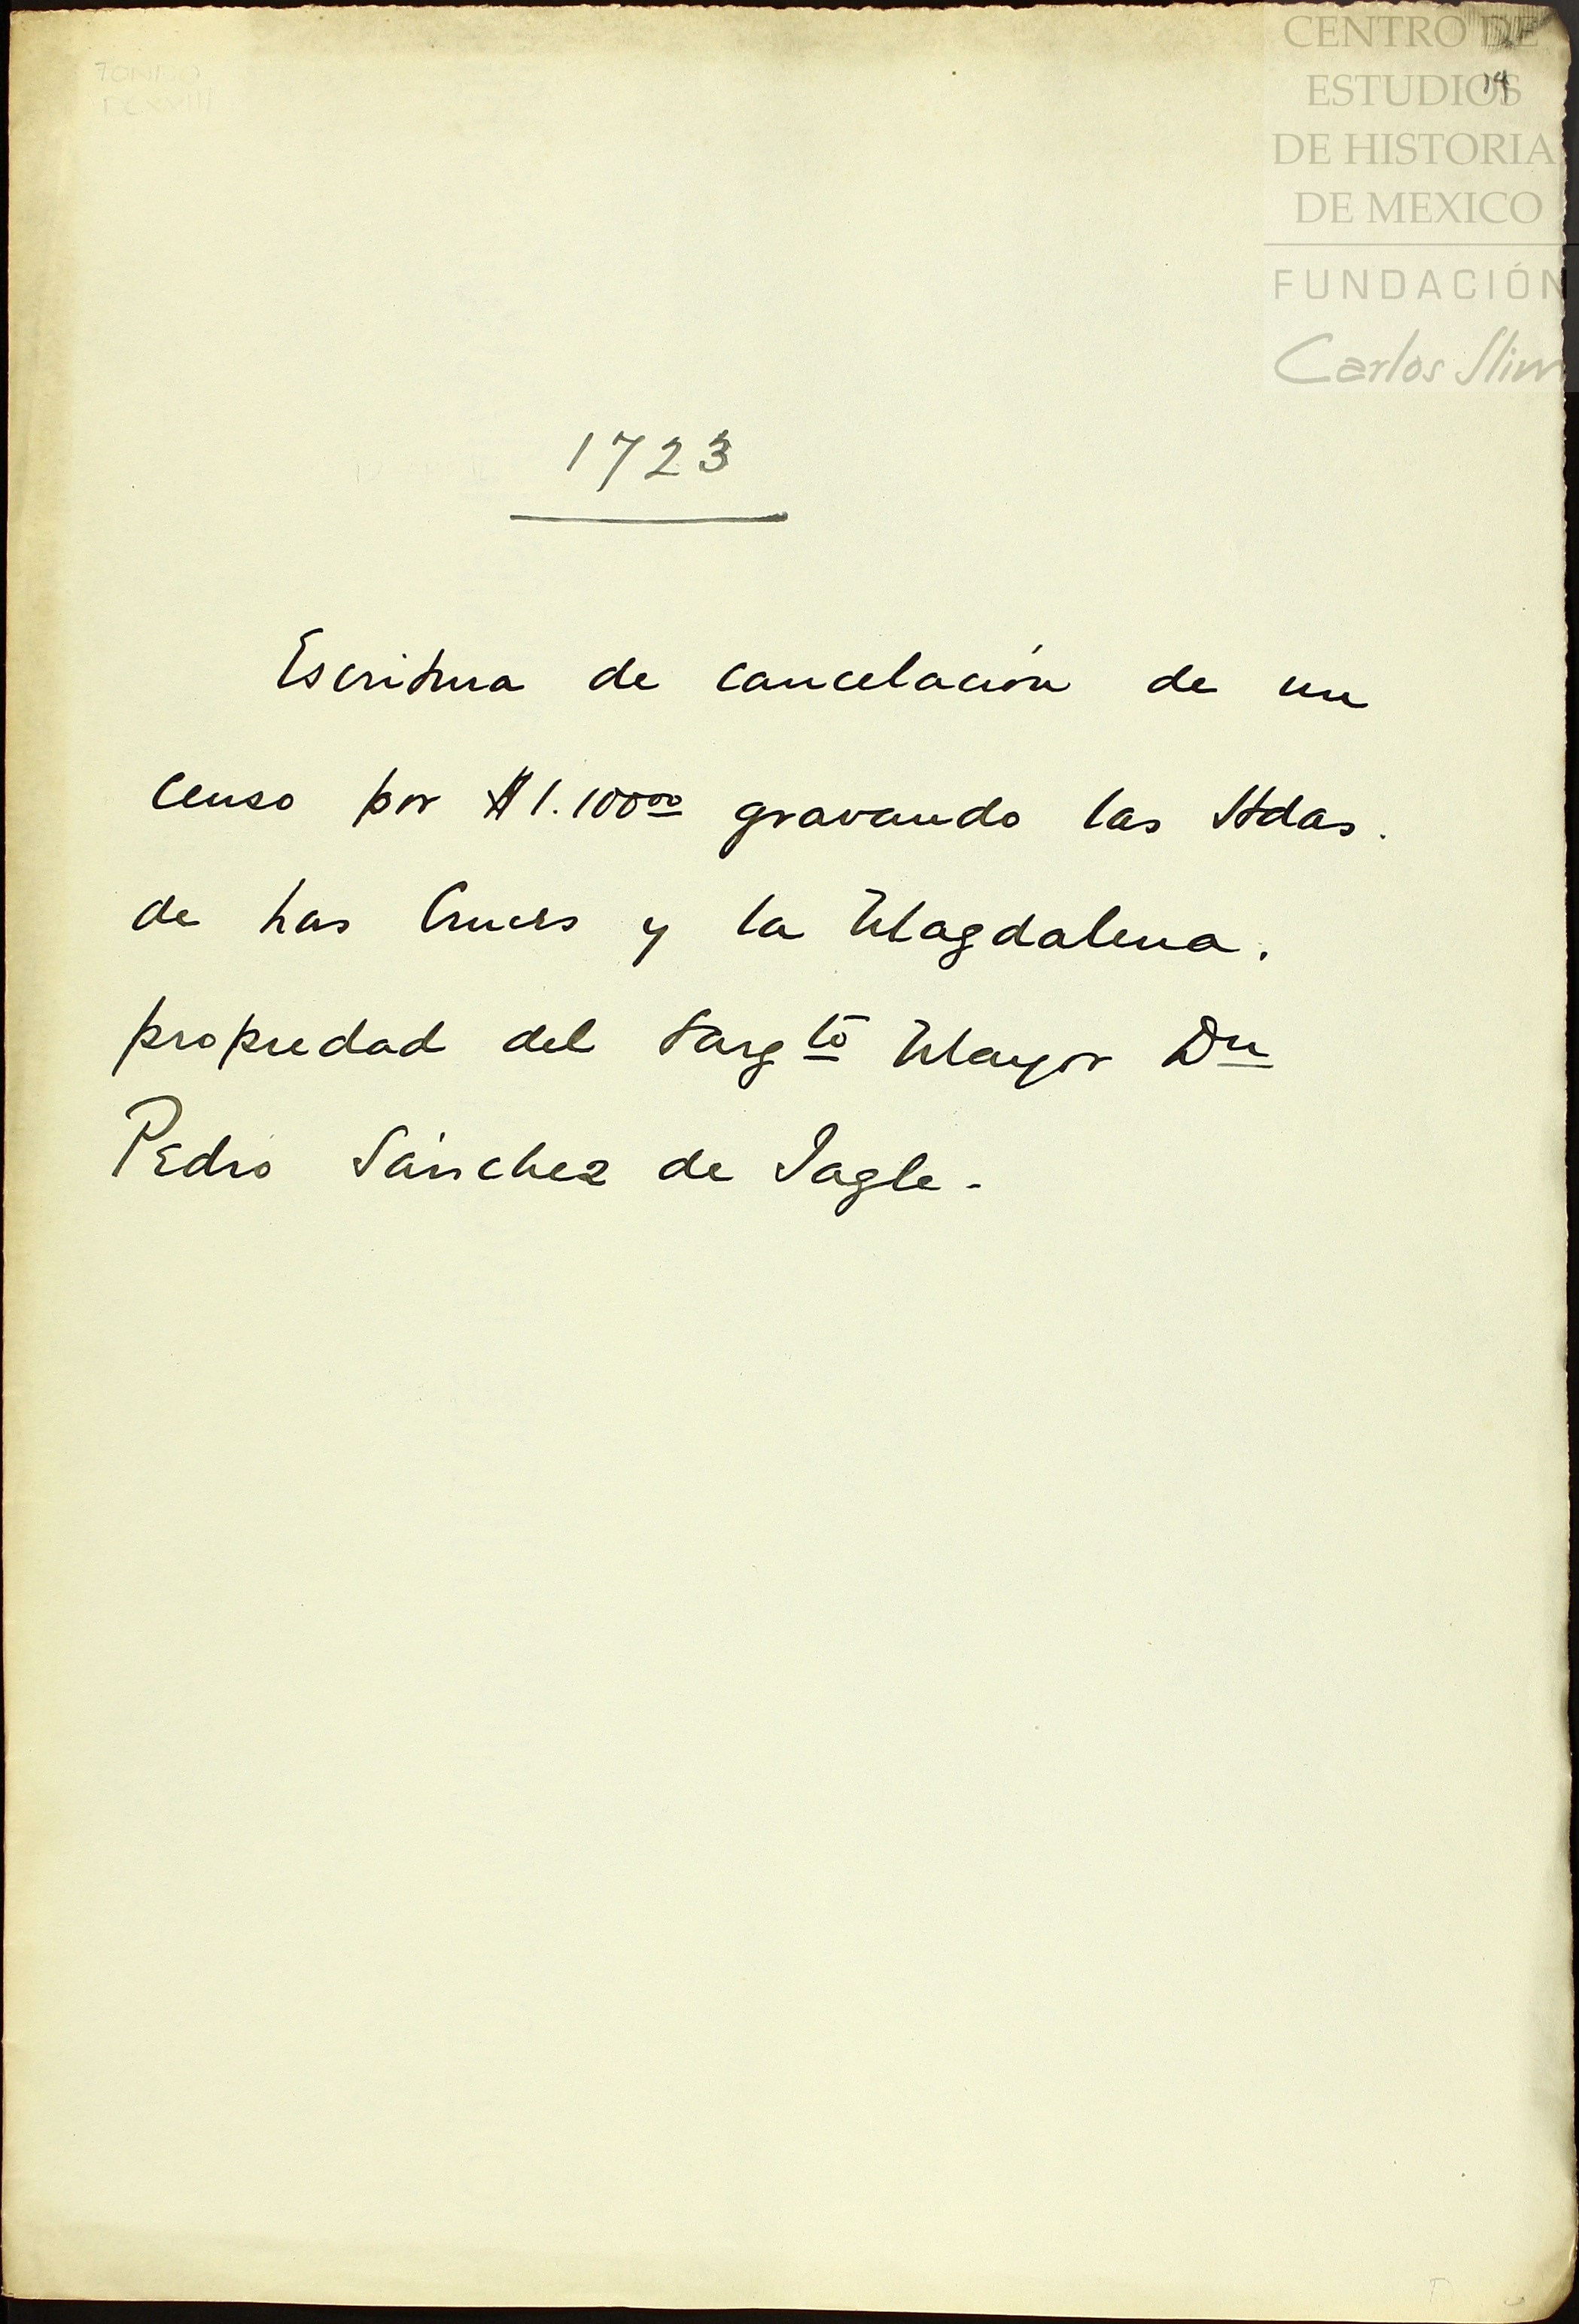 FONDO
DCXXIII
CENTRO DE
ESTUDIOS
DE HISTORIA
DE MEXICO
FUNDACIÓN
Carlos Slim
14
1723
Escritura de cancelación de un
censo por $1.100.00 gravando las Hdas.
de Las Cruces y la Magdalena,
propiedad del Sargto Mayor Dn
Pedro Sánchez de Tagle.